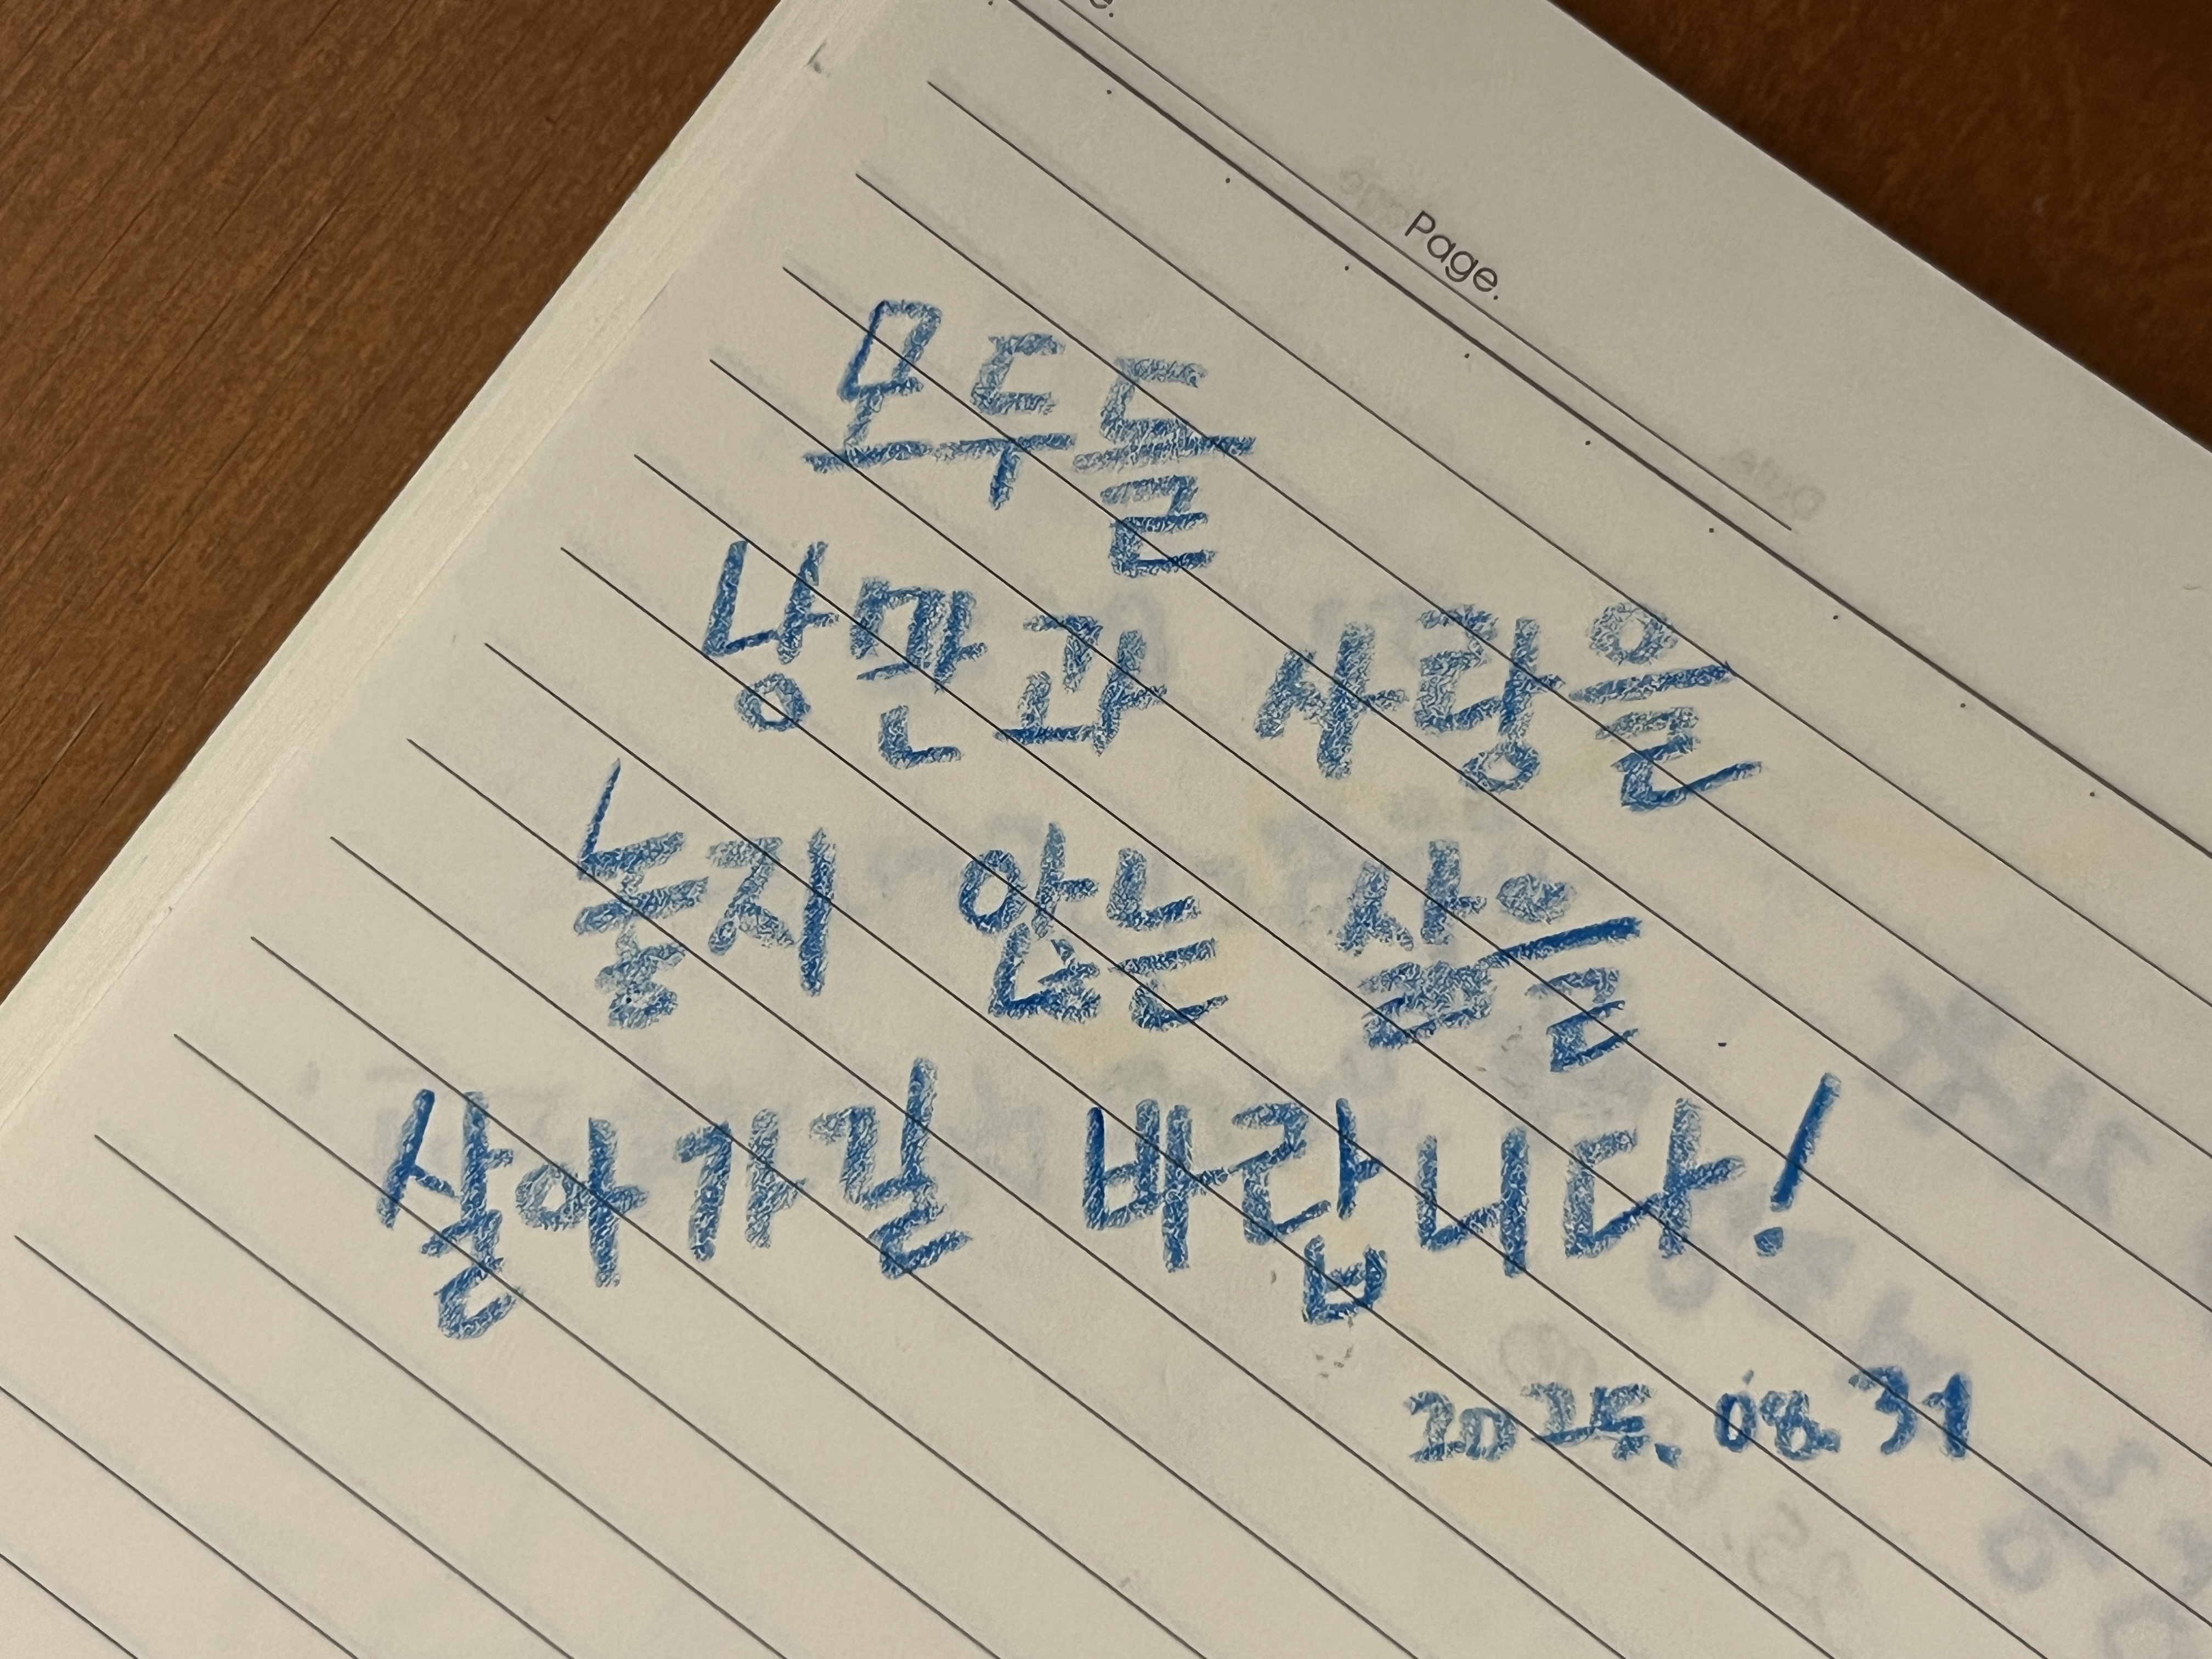 Page.
모두들
낭만과 사랑을
놓지 않는 삶을
살아가길 바랍니다!
2025. 08. 31